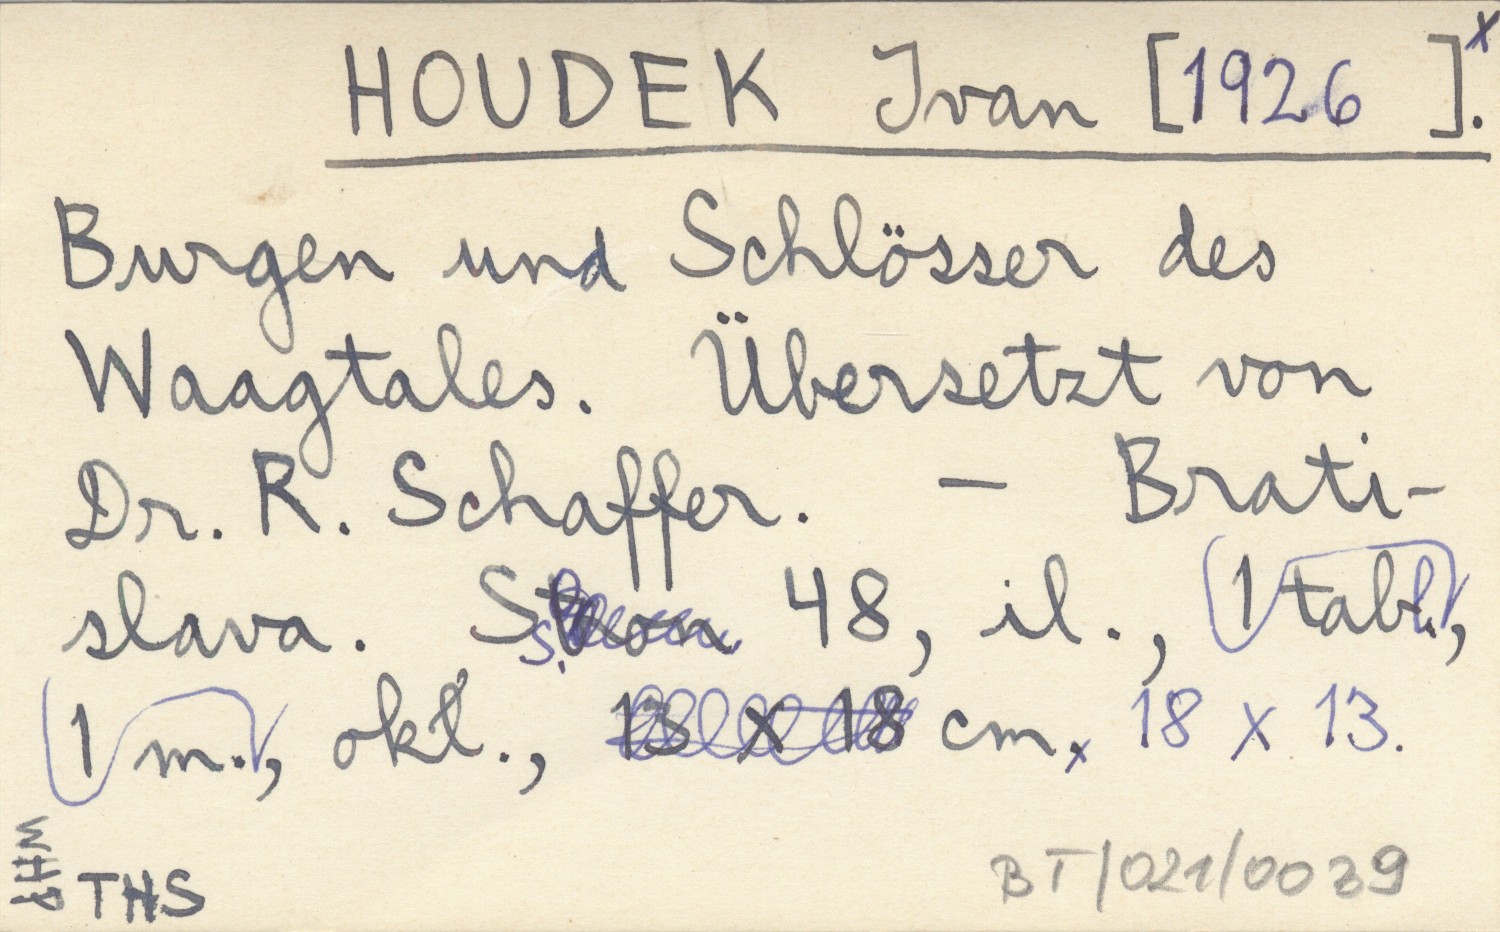 HOUDEK Ivan [1926 ].x
Burgen und Schlösser des
Waagtales. Übersetzt von
Dr. R. Schaffer. — Brati-
slava. S. 48, il., 1 tabl.,
1 m., okl., 13 x 18 cm. x 18 x 13.
THS
BT/021/0039